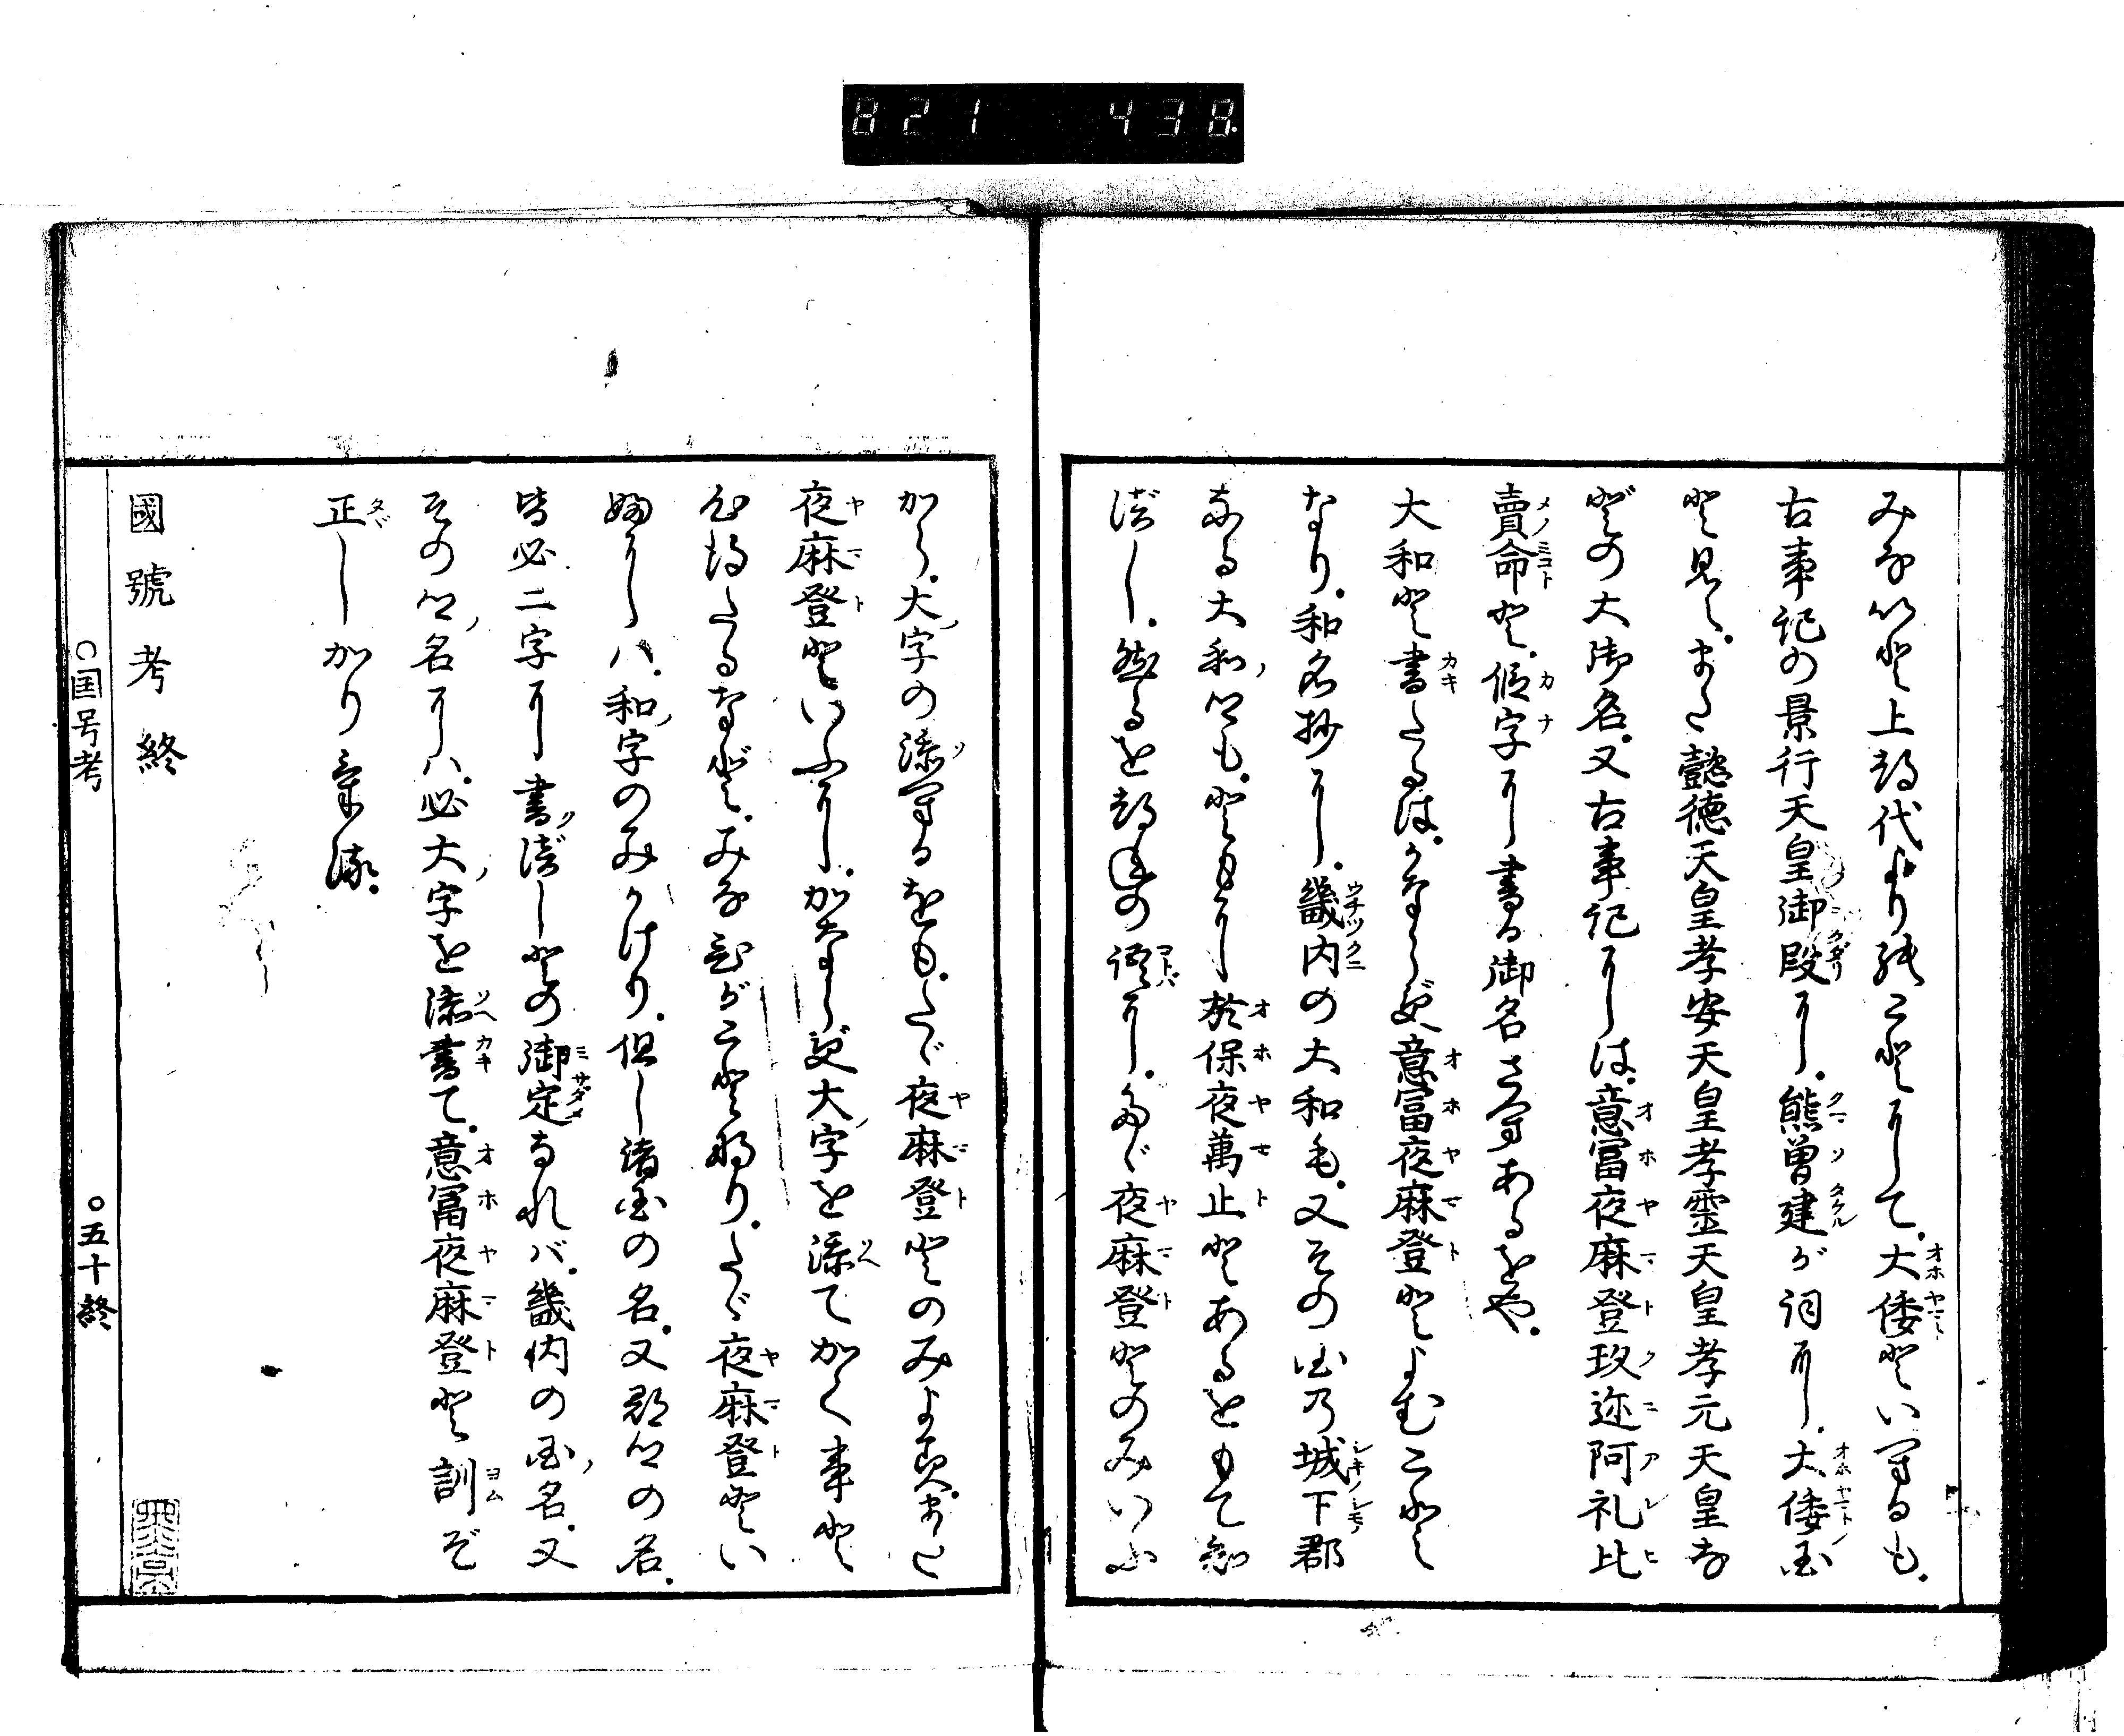 821 438
みな いと上つ代よりのことにして。大倭といへるも。
古事記の景行天皇御段に。熊曾建が詞に。大倭国
と見え。また懿徳天皇孝安天皇孝霊天皇孝元天皇な
どの大御名。又古事記には。意富夜麻登玖迩阿礼比
賣命と。假字に書る御名さへあるをや。
大和と書たるは。かならず意富夜麻登とよむこと
なり。和名抄に。畿内の大和も。又その国乃城下郡
なる大和郷も。ともに於保夜萬止とあるをもて知
べし。然るを後世の語に。たゞ夜麻登とのみいふ
から。大字の添へるをも。たゞ夜麻登とのみよみ。また
夜麻登といふに。かならず大字を添てかく事と
心得たるなど。みなひがことなり。たゞ夜麻登とい
ふには。和字のみかけり。但し諸国の名。又郡郷の名。
皆必二字に書べしとの御定なれバ。畿内の国名。又
その郷名にハ。必大字を添書て。意富夜麻登と訓ぞ
正しかりける。
國號考終
○国号考
○五十終